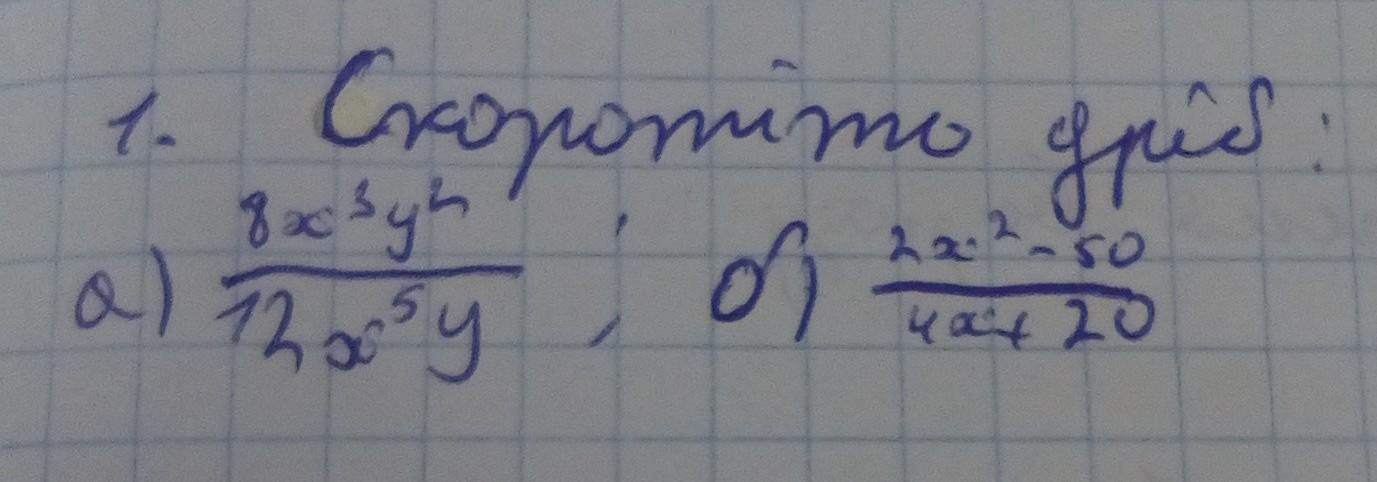 1. Скоротіть дріб:
а) 8x³y² / 12x⁵y ; б) 2x² - 50 / 4x + 20